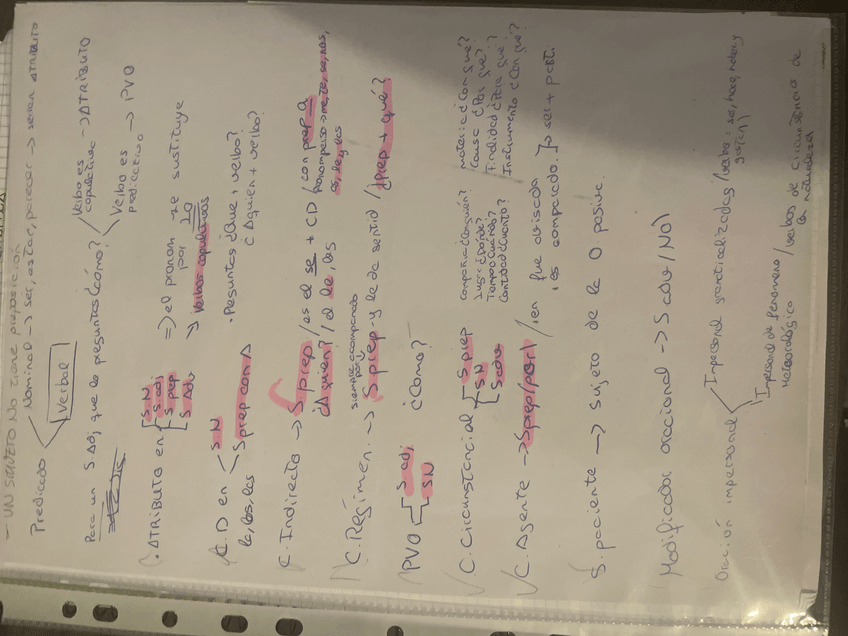 - UN SUJETO NO TIENE PREPOSICIÓN
Predicado
Nominal -> ser, estar, parecer -> llevan ATRIBUTO
Verbal
Para un S.Adj, que lo pregunta ¿cómo?
Verbo es copulativo -> ATRIBUTO
Verbo es predicativo -> PVO
. ATRIBUTO en
S.N
S.adj
S.prep
S.Adv
=> el pronom se sustituye por LO
-> Verbos copulativos
C.D en
S.N
S prep con A
lo, los, las
. Preguntas ¿Qué + verbo?
¿A quién + verbo?
C. Indirecto -> S prep / es el se + CD / con prep a
¿A quién? / el le, les
pronombres -> me, te, se, nos, os, le, les
C. Régimen. -> S prep - y le da sentid / ¿prep + qué?
siempre acompañado por
PVO
S adj
SN
¿Cómo?
C. Circunstancial
S prep
SN
S adv
compañía ¿Con quién?
Lugar ¿Dónde?
Tiempo ¿Cuándo?
Cantidad ¿Cuánto?
materia ¿Con qué?
Causa ¿Por qué?
Finalidad ¿Para qué?
Instrumento ¿Con qué?
C. Agente -> S prep (por) / en fue abiscada
, es comparado.
ser + part.
S. paciente -> Sujeto de la O pasiva.
Modificador oracional -> S adv / NO)
Oración impersonal
Impersonal gramaticalizadas (verbo: ser, hacer, haber y
Impersonal de fenómeno Meteorológico / verbos de circunstancia de la naturaleza